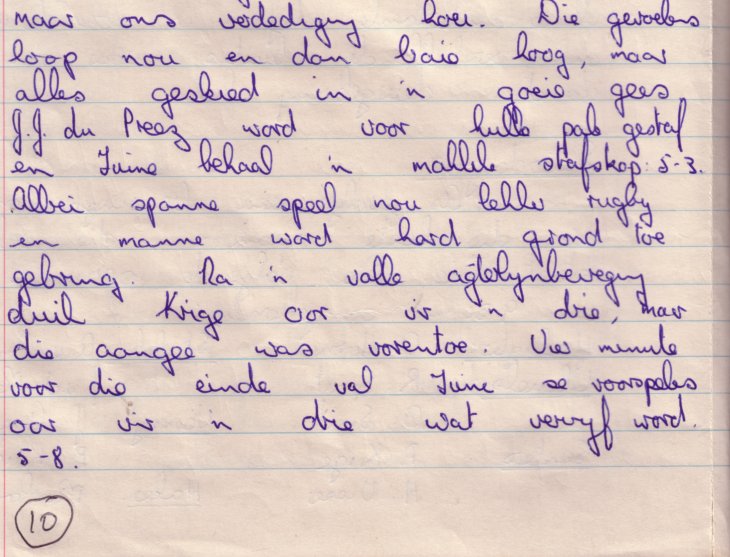 maar ons verdediging hou. Die gevoelens
loop nou en dan baie hoog, maar
alles geskied in 'n goeie gees
J.J. du Preez word voor hulle pale gestraf
en Tuine behaal 'n maklike strafskop: 5-3.
Albei spanne speel nou lekker rugby
en manne word hard grond toe
gebring. Na 'n vallê agterlynbeweging
duik Krige oor vir 'n drie, maar
die aangee was vorentoe. Vier minute
voor die einde val Tuine se voorspelers
oor vir 'n drie wat verwyf word.
5-8.
10